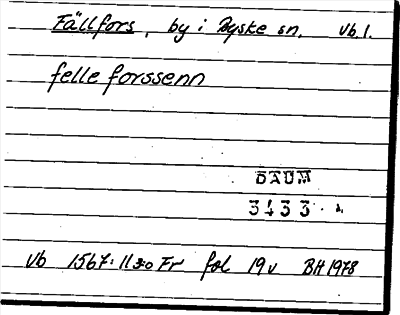 Fällfors, by i Byske sn. Vb. l.
felle forssenn
DAUM
3433
Vb 1567: Fr fol 19 v BH 1978